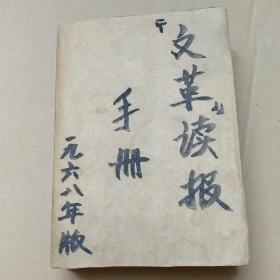 『文革』读报
手册
一九六八年版